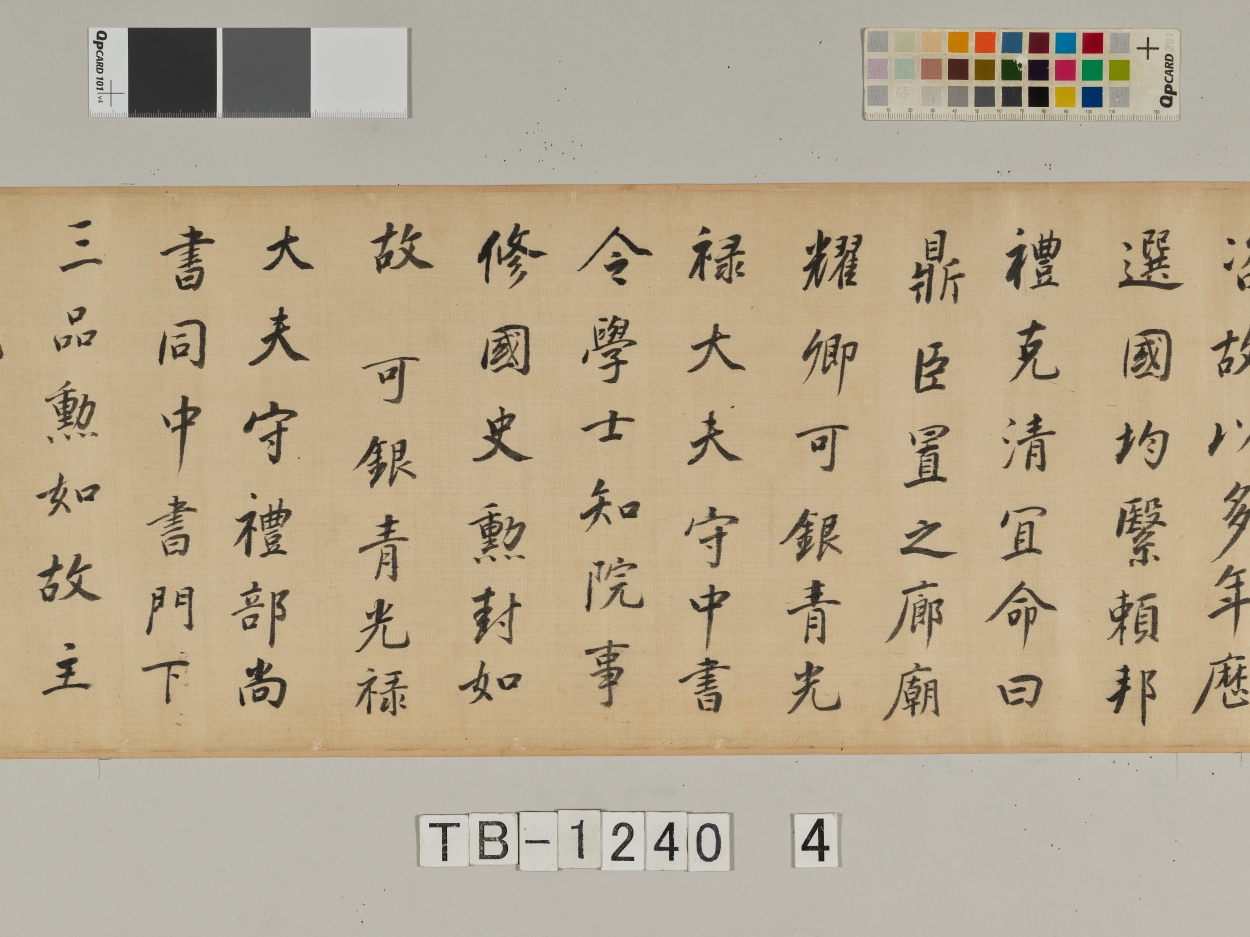 QPCARD 101 v4
QPCARD 201
故以多年歷
選國均緊賴邦
禮克清宜命曰
鼎臣置之廊廟
耀卿可銀青光
祿大夫守中書
令學士知院事
修國史勳封如
故可銀青光祿
大夫守禮部尚
書同中書門下
三品勳如故主
TB-1240 4